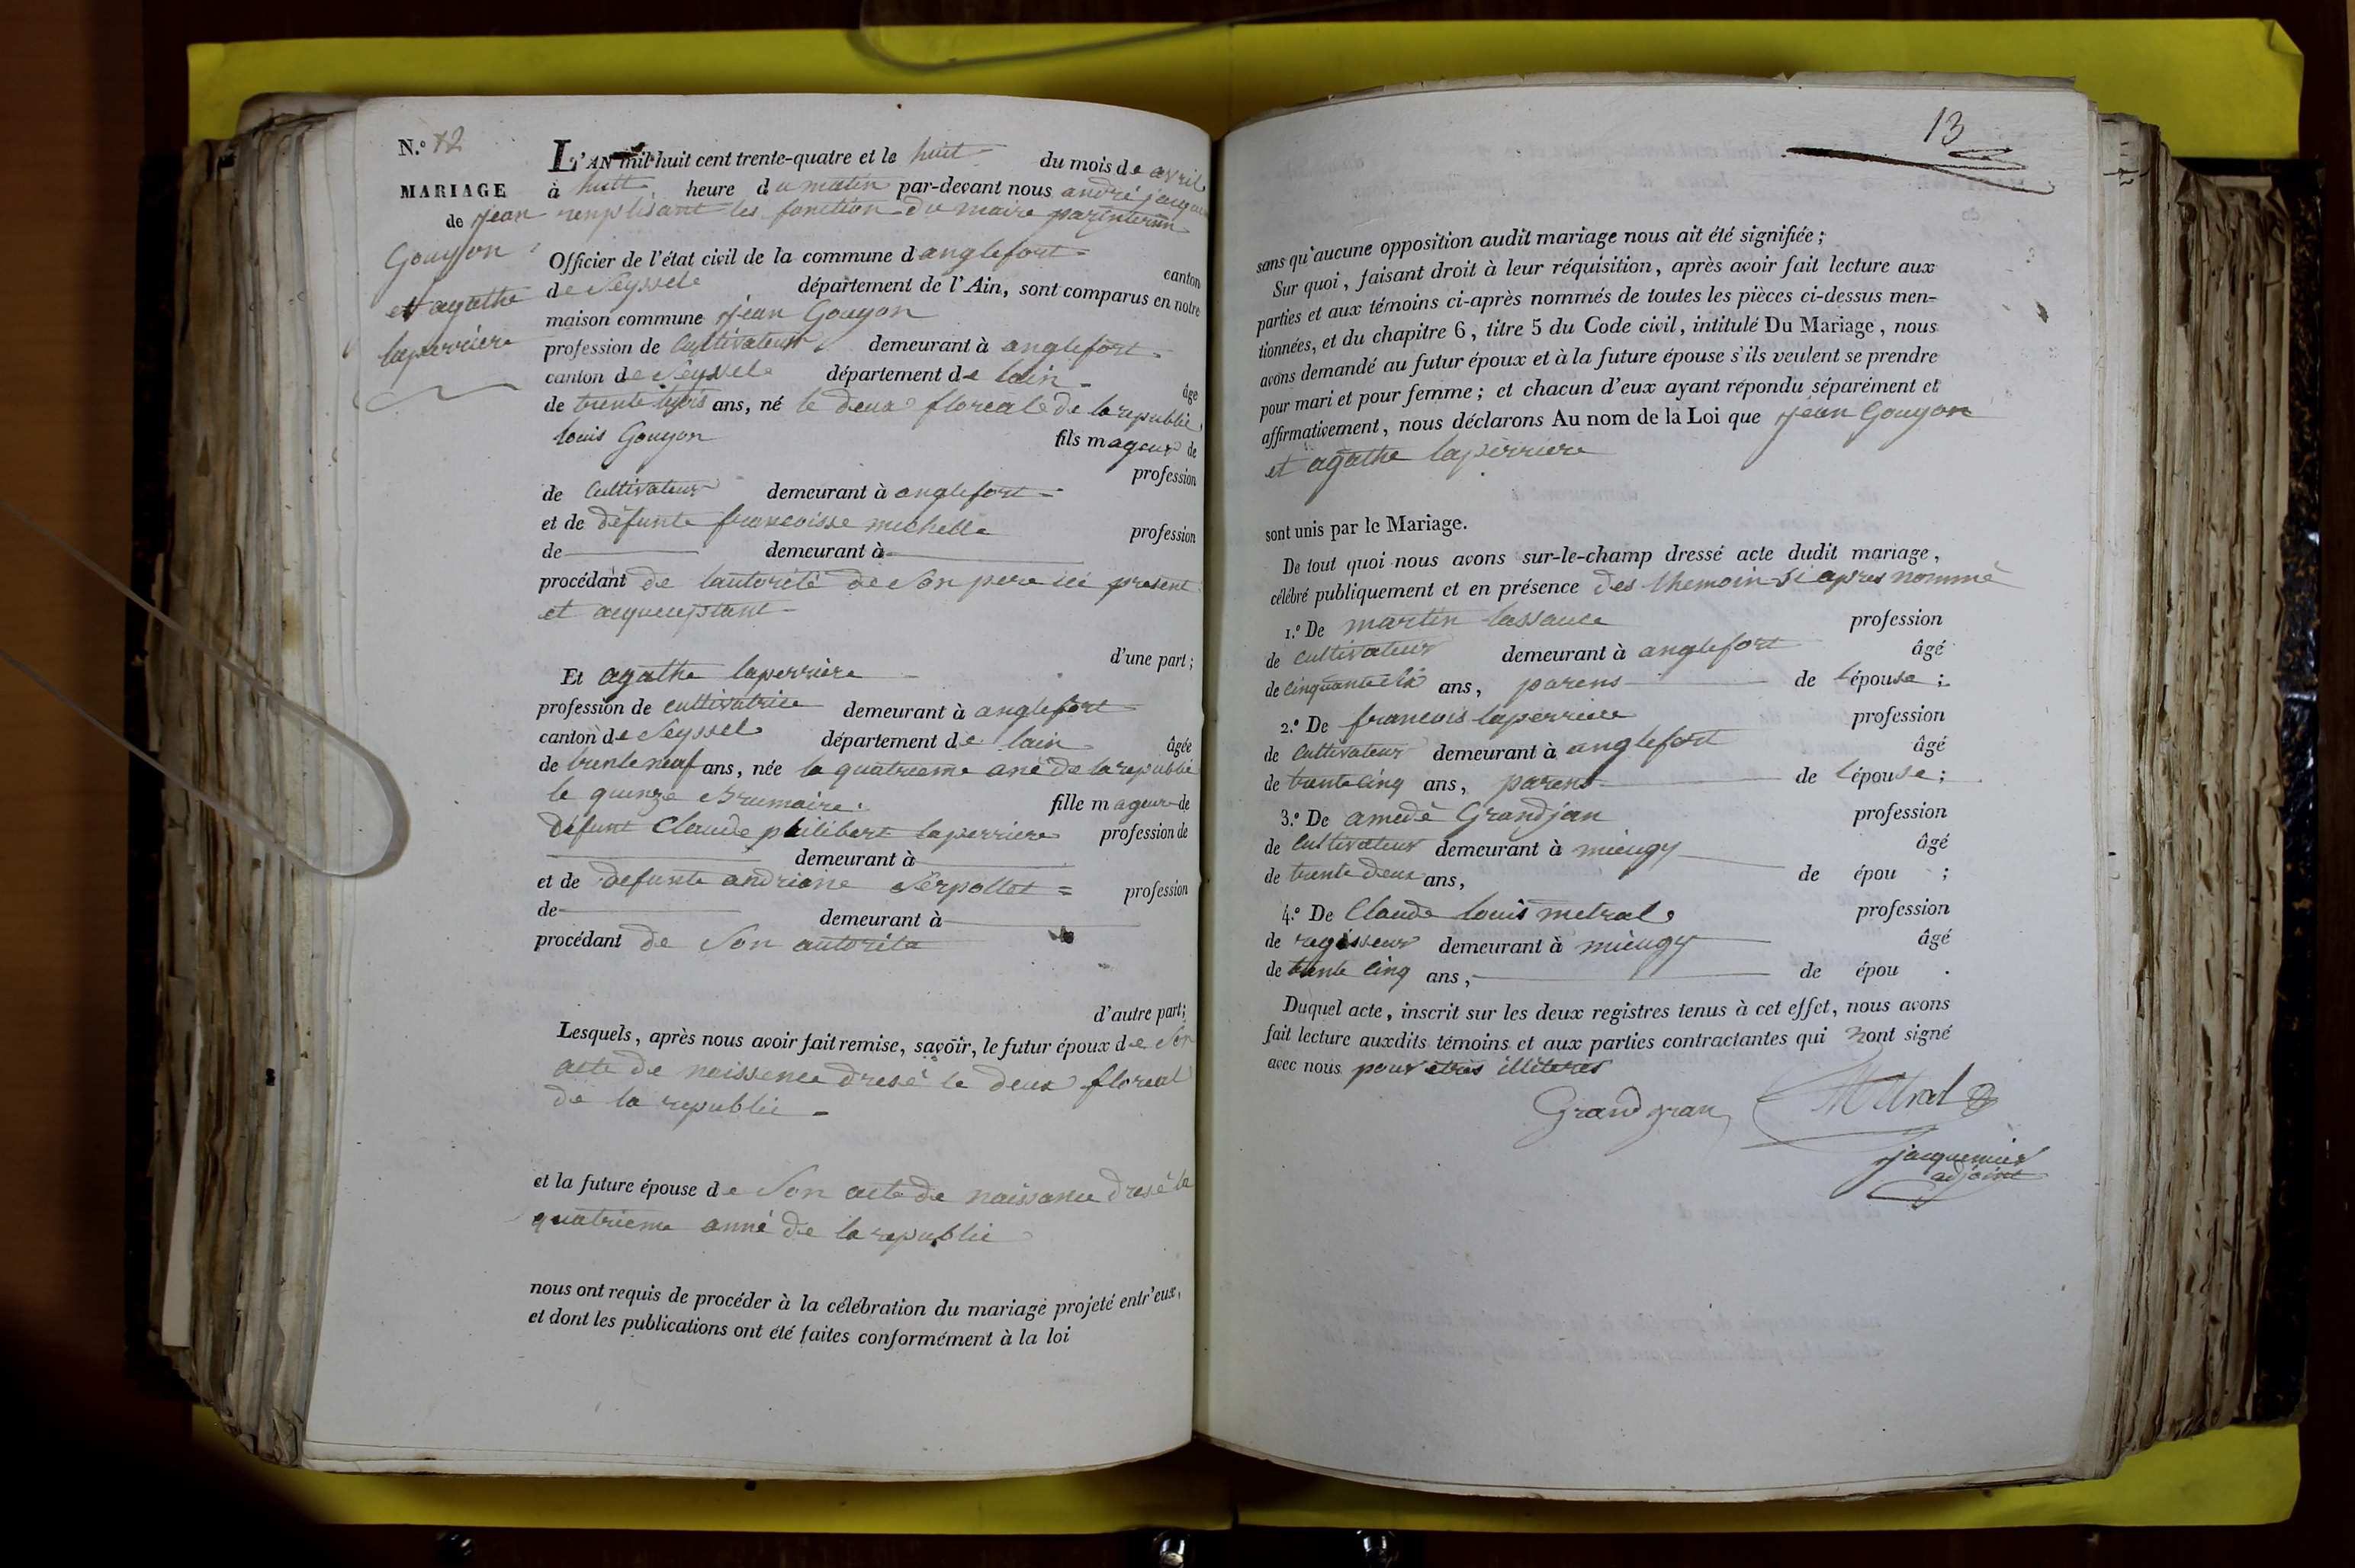 N.° 12
MARIAGE
de jean
Gouyon
et agathe
laperrière
L'AN mil huit cent trente-quatre et le huit du mois de avril
à huit heure du matin par-devant nous andré jacque
remplisant les fonction du maire parinterim
Officier de l'état civil de la commune d anglefort
canton
de Seyssele département de l'Ain, sont comparus en notre
maison commune jean Gouyon
profession de Cultivateur demeurant à anglefort
canton de Seyssele département de lain
âgé
de trente trois ans, né le deux floreale de la republic
louis Gouyon fils mageur de
profession
de Cultivateur demeurant à anglefort
et de défunte francoisse michelle profession
de demeurant à
procédant de lautorité de Son pere ici present
et acqueuptant
d'une part;
Et agathe laperrière
profession de cultivatrice demeurant à anglefort
canton de Seyssel département de lain âgée
de trente neuf ans, née la quatrieme ané de la republic
le quinze Brumaire. fille mageure de
défunt Claude philibert laperriere profession de
demeurant à
et de defunte andriane Serpollet = profession
de demeurant à
procédant de Son autorité
d'autre part;
Lesquels, après nous avoir fait remise, savoir, le futur époux de Son
acte de naissence dresé le deux floreal
de la republic
et la future épouse de Son acte de naissance dresé la
quatrieme anné de la republic
nous ont requis de procéder à la célébration du mariage projeté entr'eux,
et dont les publications ont été faites conformément à la loi
13
sans qu'aucune opposition audit mariage nous ait été signifiée;
Sur quoi, faisant droit à leur réquisition, après avoir fait lecture aux
parties et aux témoins ci-après nommés de toutes les pièces ci-dessus men-
tionnées, et du chapitre 6, titre 5 du Code civil, intitulé Du Mariage, nous
avons demandé au futur époux et à la future épouse s'ils veulent se prendre
pour mari et pour femme; et chacun d'eux ayant répondu séparément et
affirmativement, nous déclarons Au nom de la Loi que jean Gouyon
et agathe laperriere
sont unis par le Mariage.
De tout quoi nous avons sur-le-champ dressé acte dudit mariage,
célébré publiquement et en présence des themoin Si apres nommé
1.° De martin lassauce profession
de cultivateur demeurant à anglefort âgé
de cinquante six ans, parens de l'épouse;
2.° De francois laperriere profession
de Cultivateur demeurant à anglefort âgé
de trente cinq ans, parens de l'épouse;
3.° De amedé Grandjan profession
de Cultivateur demeurant à mieugy âgé
de trente deux ans, de épou ;
4.° De Claude louis metral profession
de regisseur demeurant à mieugy âgé
de trente cinq ans, de épou .
Duquel acte, inscrit sur les deux registres tenus à cet effet, nous avons
fait lecture auxdits témoins et aux parties contractantes qui nont signé
avec nous pour etres illiteres
Grandjean Metral
jacquemier
adjoint